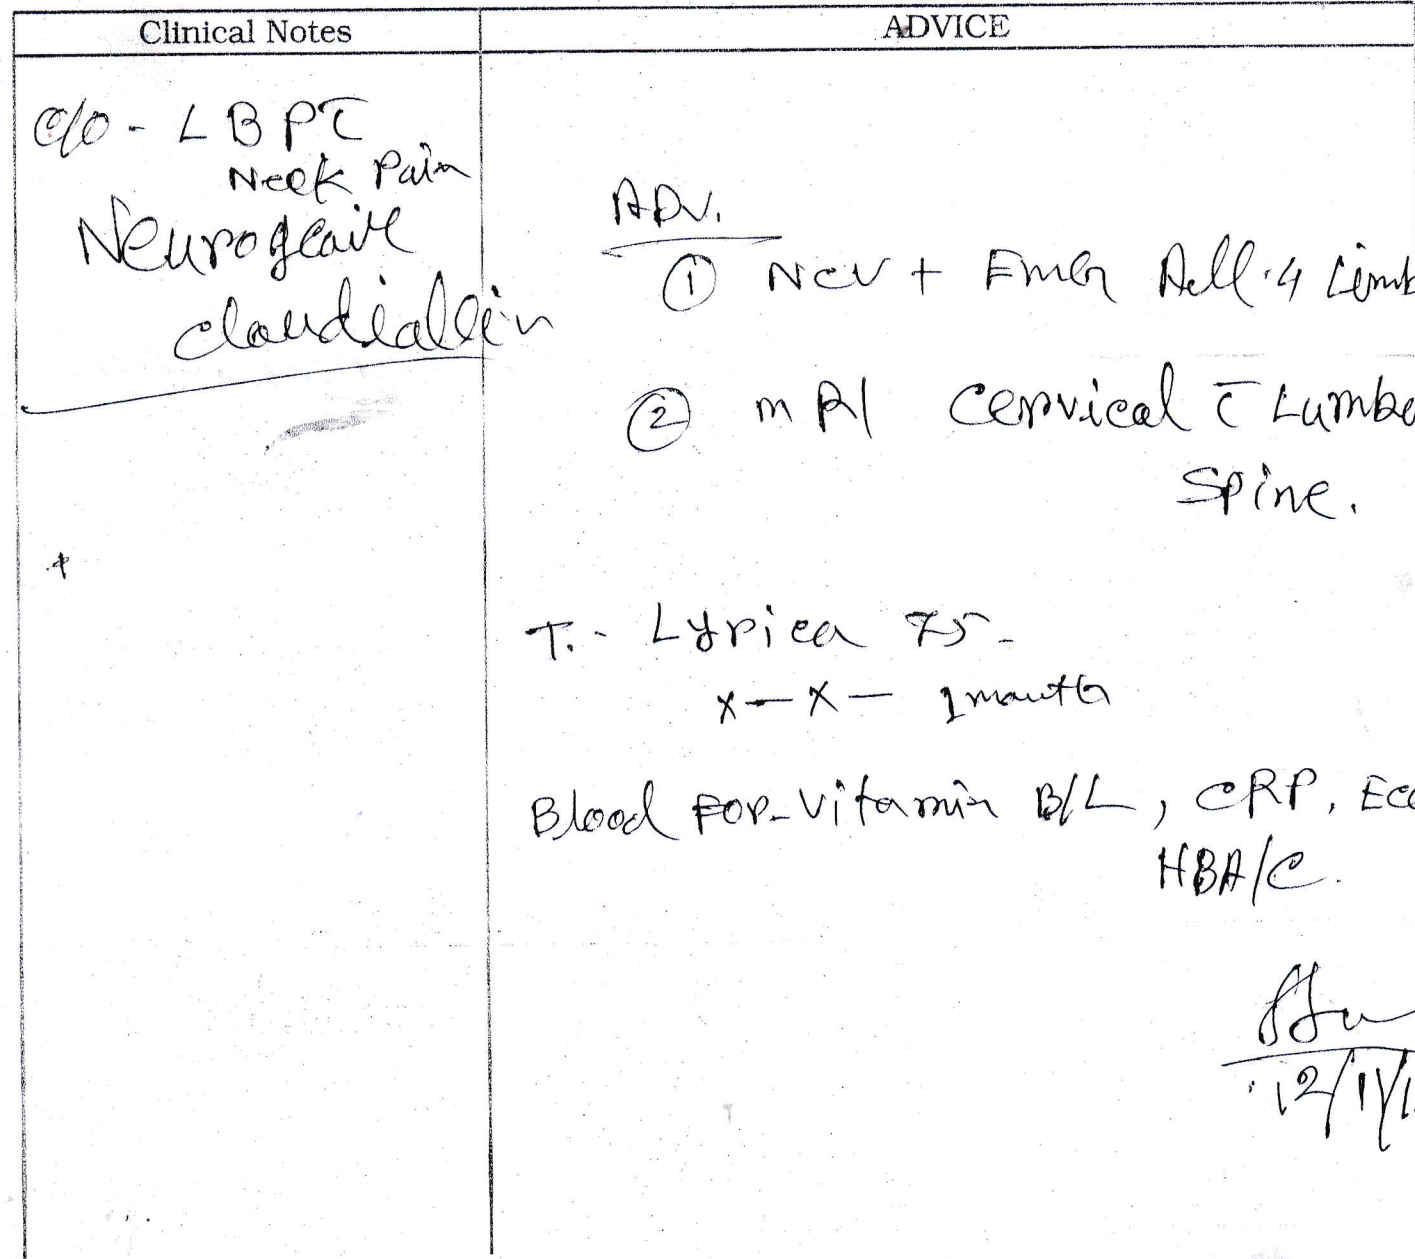 Clinical Notes
ADVICE
c/o - LBP c̄
Neck Pain
Neurogenic
claudication
ADV.
① NCV + EMG All 4 Limb
② MRI Cervical c̄ Lumba
Spine.
T. - Lyrica 75 -
x — x — 1 month
Blood For - Vitamin B/L, CRP,
HBA1C.
12/11/1